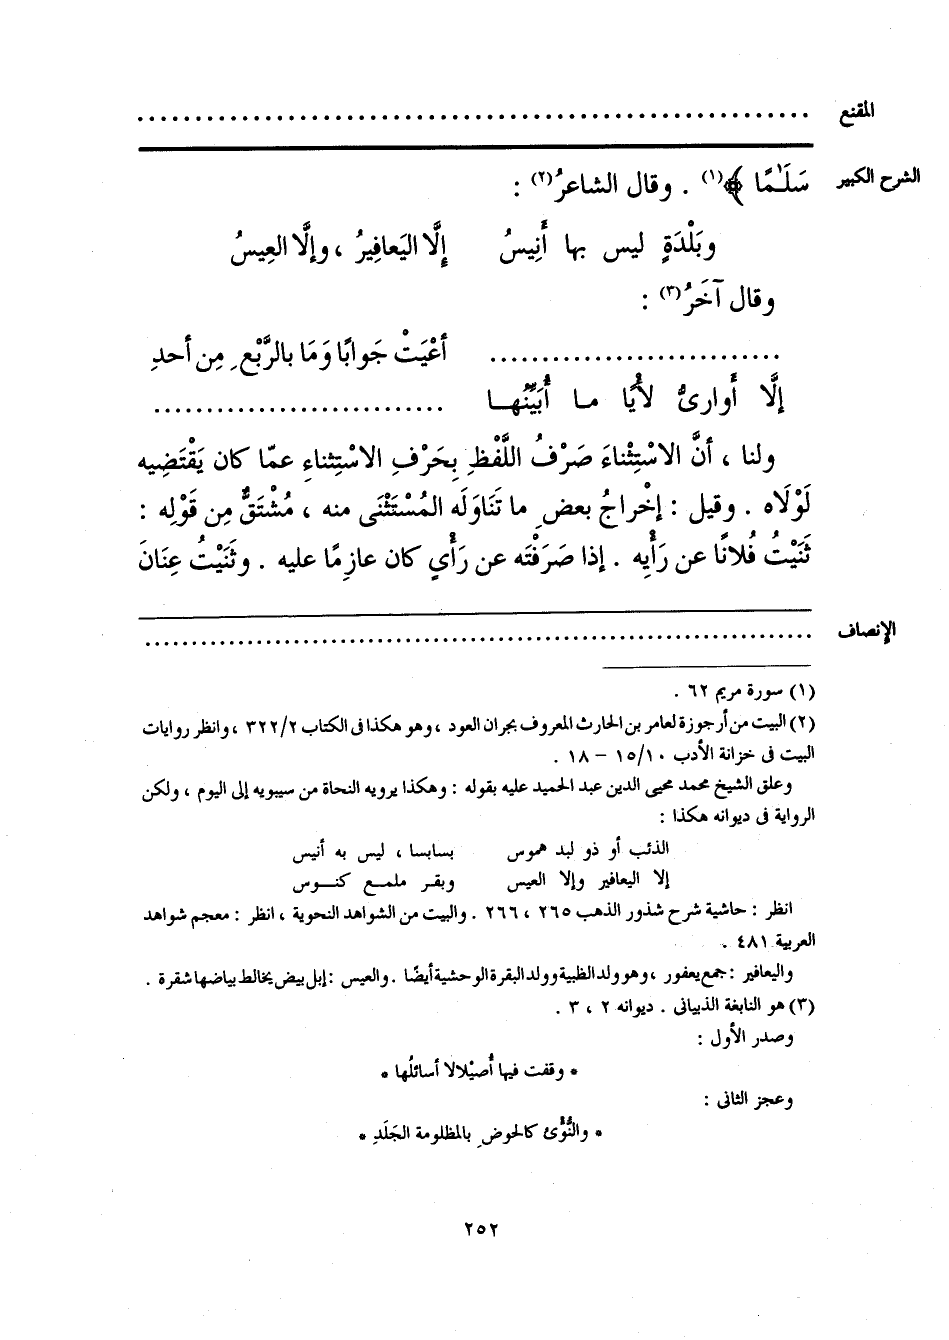 المقنع ........................................................
الشرح الكبير سَلَـٰمًا ﴾(١) . وقال الشاعرُ(٢) :
وبَلْدَةٍ ليس بها أَنِيسُ إلَّا اليَعافِيرُ ، وإلَّا العِيسُ
وقال آخَرُ(٣) :
............................ أعْيَتْ جَوابًا وَمَا بالرَّبْعِ مِن أحدِ
إلَّا أَوارِىُّ لأْيًا ما أُبَيِّنُهـا ............................
ولنا ، أنَّ الاسْتِثْناءَ صَرْفُ اللَّفْظِ بِحَرْفِ الاسْتِثناءِ عمّا كان يَقْتَضِيه
لَوْلَاه . وقيل : إخْراجُ بعضِ ما تَناوَلَه المُسْتَثْنَى منه ، مُشْتَقٌّ مِن قَوْلِه :
ثَنَيْتُ فُلانًا عن رَأْيِه . إذا صَرَفْتَه عن رَأْيٍ كان عازِمًا عليه . وثَنَيْتُ عِنَانَ
الإنصاف ........................................................
(١) سورة مريم ٦٢ .
(٢) البيت من أرجوزة لعامر بن الحارث المعروف بجران العود ، وهو هكذا فى الكتاب ٣٢٢/٢ ، وانظر روايات
البيت فى خزانة الأدب ١٥/١٠ – ١٨ .
وعلق الشيخ محمد محيى الدين عبد الحميد عليه بقوله : وهكذا يرويه النحاة من سيبويه إلى اليوم ، ولكن
الرواية فى ديوانه هكذا :
الذئب أو ذو لبد هموس بسابسا ، ليس به أنيس
إلا اليعافير وإلا العيس وبقـر ملمـع كنـوس
انظر : حاشية شرح شذور الذهب ٢٦٥ ، ٢٦٦ . والبيت من الشواهد النحوية ، انظر : معجم شواهد
العربية ٤٨١ .
واليعافير : جمع يعفور ، وهو ولد الظبية وولد البقرة الوحشية أيضًا . والعيس : إبل بيض يخالط بياضها شقرة .
(٣) هو النابغة الذبيانى . ديوانه ٢ ، ٣ .
وصدر الأول :
* وقفت فيها أُصيْلالا أسائلُها *
وعجز الثانى :
* والنُّؤْىُ كالحوضِ بالمظلومة الجَلَدِ *
٢٥٢